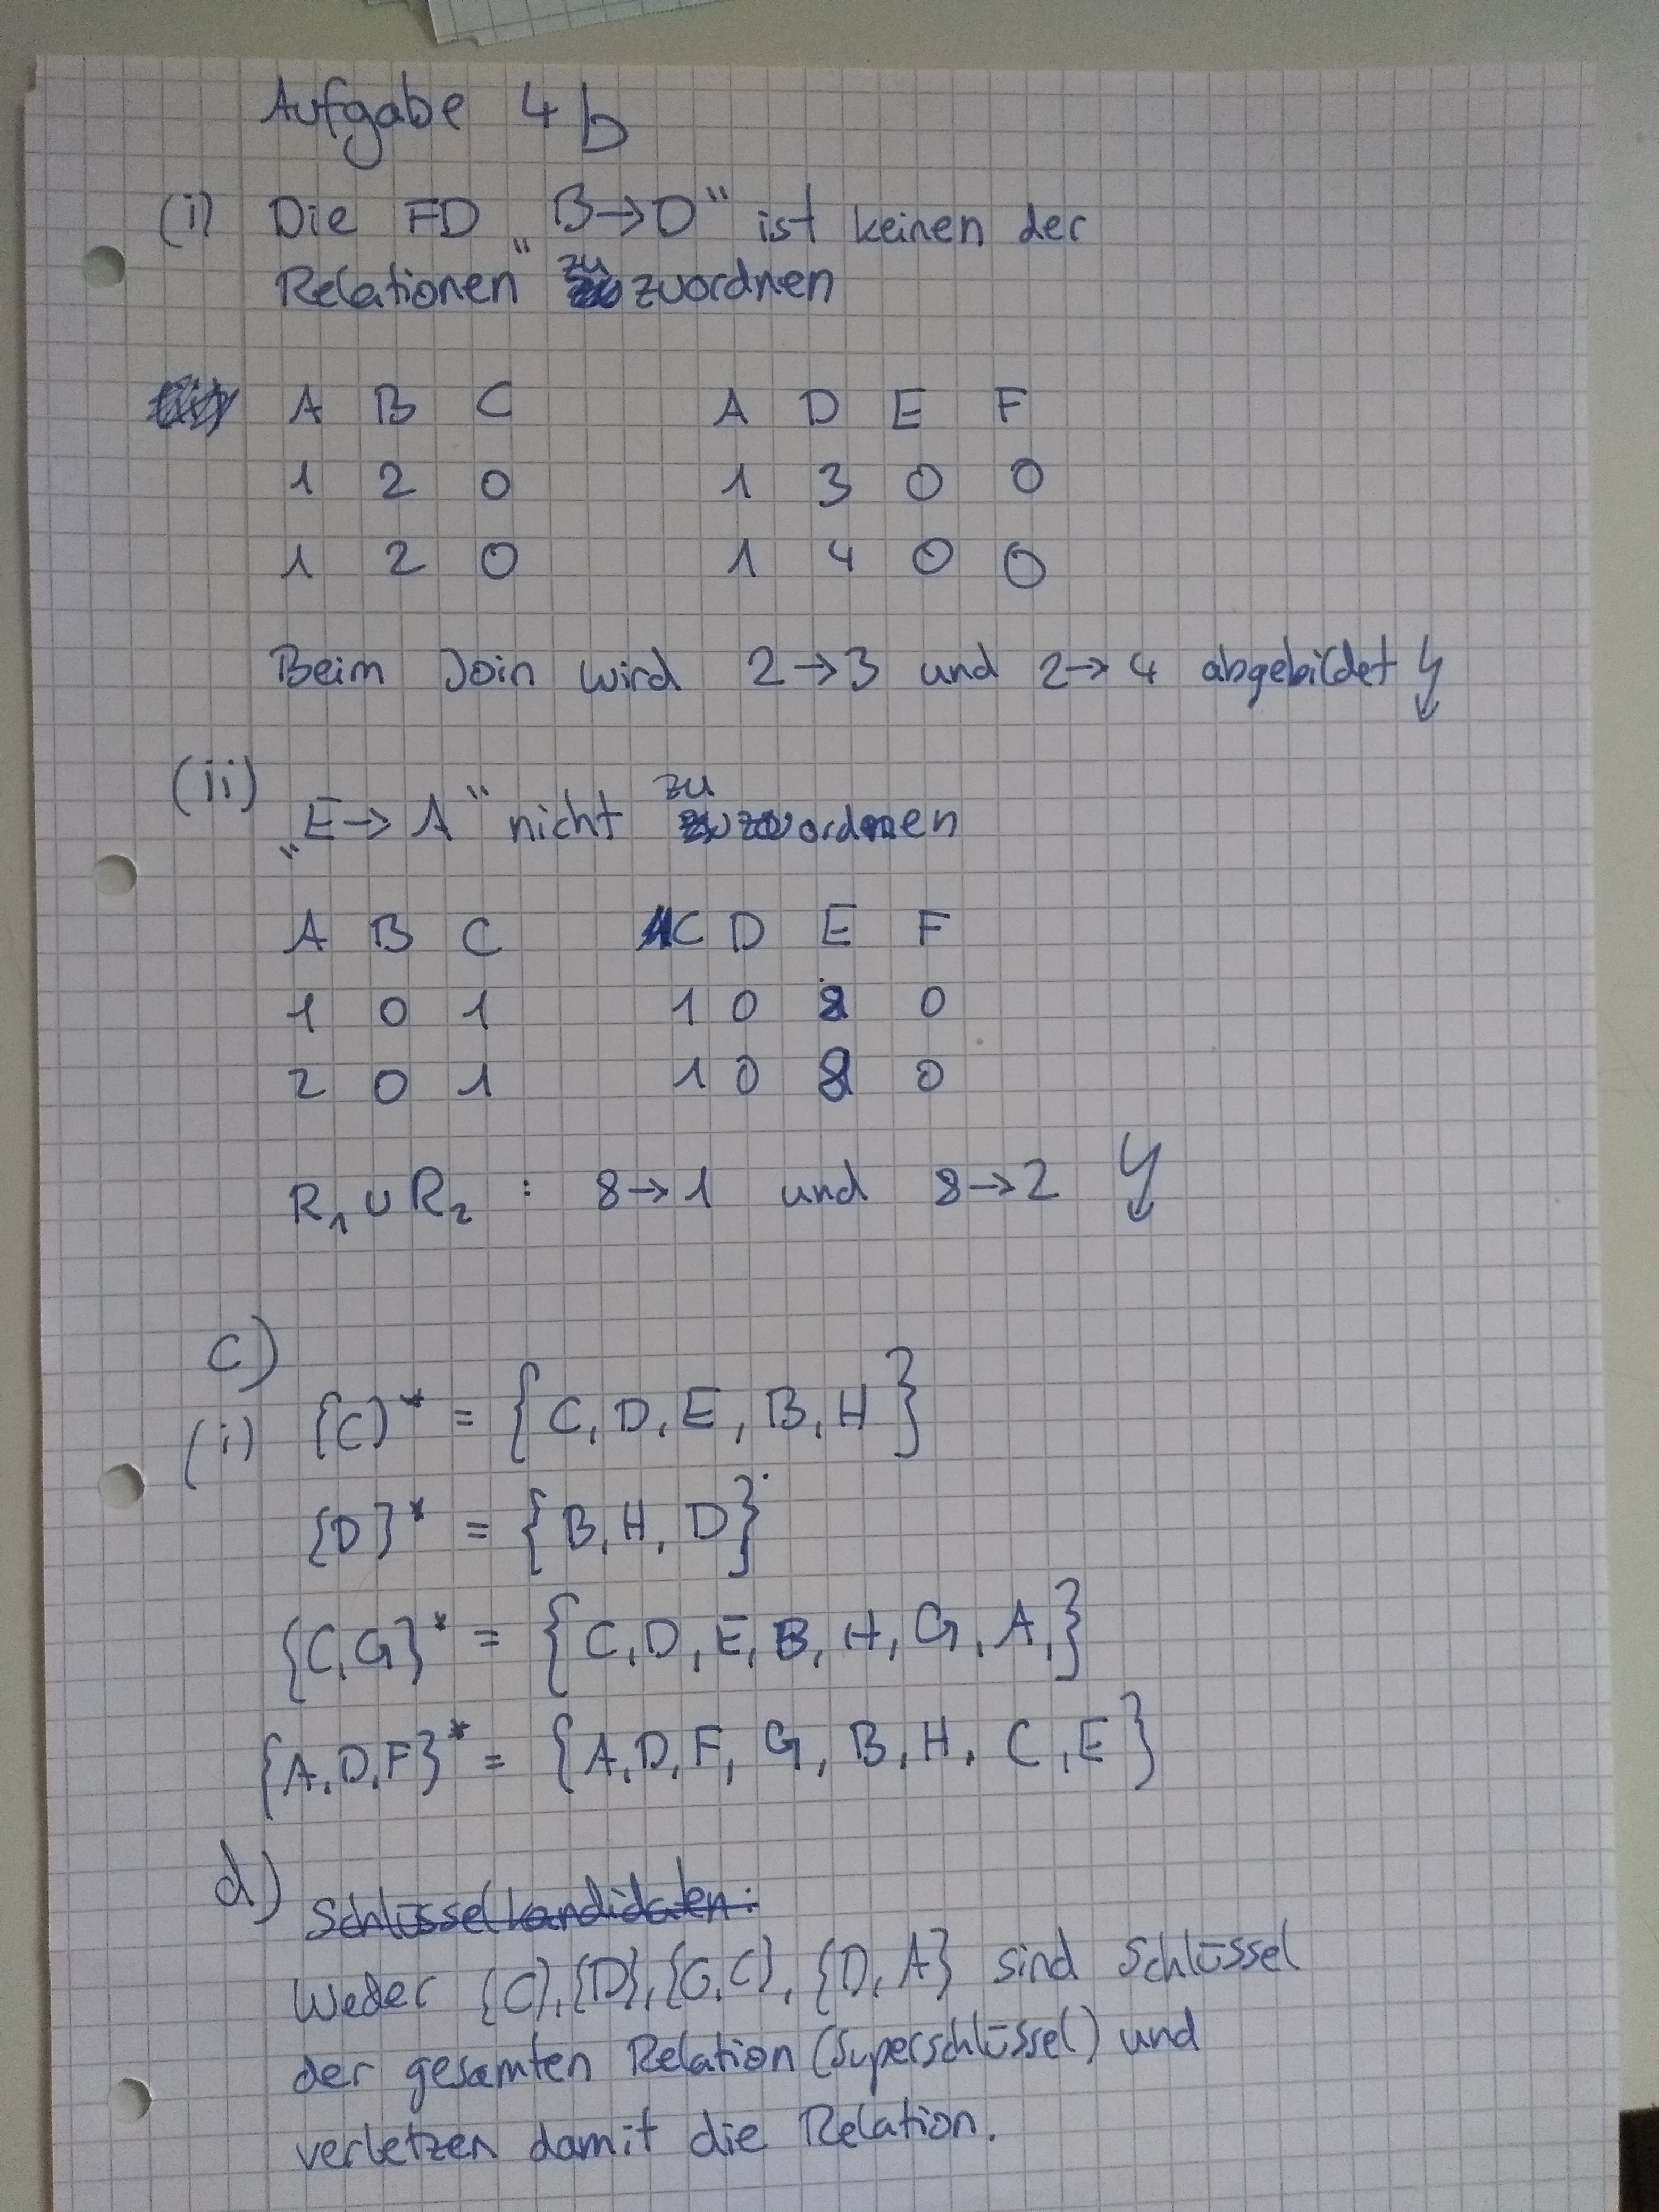 Aufgabe 4 b
(i) Die FD „B→D“ ist keinen der
Relationen zu zuordnen
A B C A D E F
1 2 0 1 3 0 0
1 2 0 1 4 0 0
Beim Join wird 2→3 und 2→4 abgebildet ↯
(ii) „E→A“ nicht zu ordnen
A B C C D E F
1 0 1 1 0 8 0
2 0 1 1 0 8 0
R₁ ∪ R₂ : 8→1 und 8→2 ↯
c)
(i) {C}* = {C, D, E, B, H}
{D}* = {B, H, D}
{C,G}* = {C, D, E, B, H, G, A,}
{A,D,F}* = {A, D, F, G, B, H, C, E}
d) Schlüsselkandidaten:
Weder {C}, {D}, {G,C}, {D,A} sind Schlüssel
der gesamten Relation (Superschlüssel) und
verletzen damit die Relation.